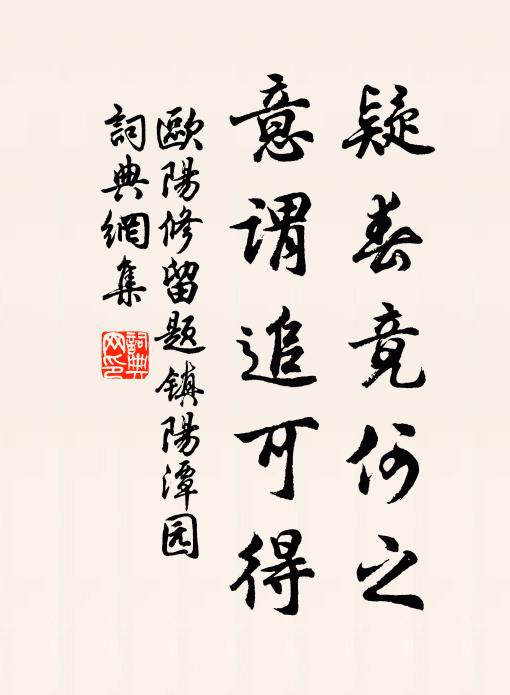 疑春竟何之
意谓追可得
歐陽修留题镇陽潭园
詞典網集
詞典网印